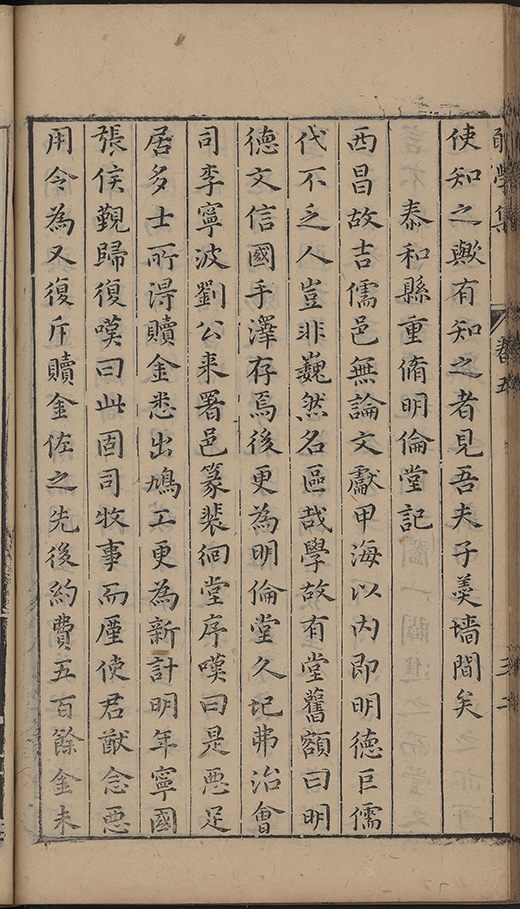 學集 卷五
使知之歟有知之者見吾夫子羹墻間矣
泰和縣重脩明倫堂記
西昌故吉儒邑無論文獻甲海以内即明德巨儒
代不乏人豈非巍然名區哉學故有堂舊額曰明
德文信國手澤存焉後更為明倫堂久圮弗治會
司李寧波劉公来署邑篆裴徊堂序嘆曰是惡足
居多士所淂贖金悉出鳩工更為新計明年寧國
張侯覲歸復嘆曰此固司牧事而廑使君猷念惡
用令為又復斥贖金佐之先後約費五百餘金未